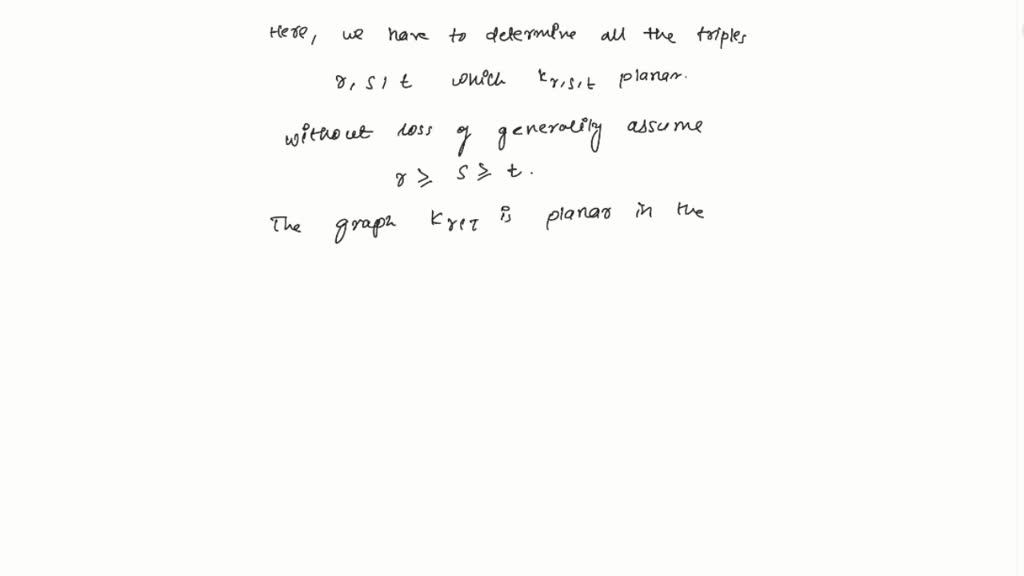 Here, we have to determine all the triples
r, s, t which K r,s,t planar.
without loss of generality assume
r ≥ s ≥ t.
The graph K rst is planar in the